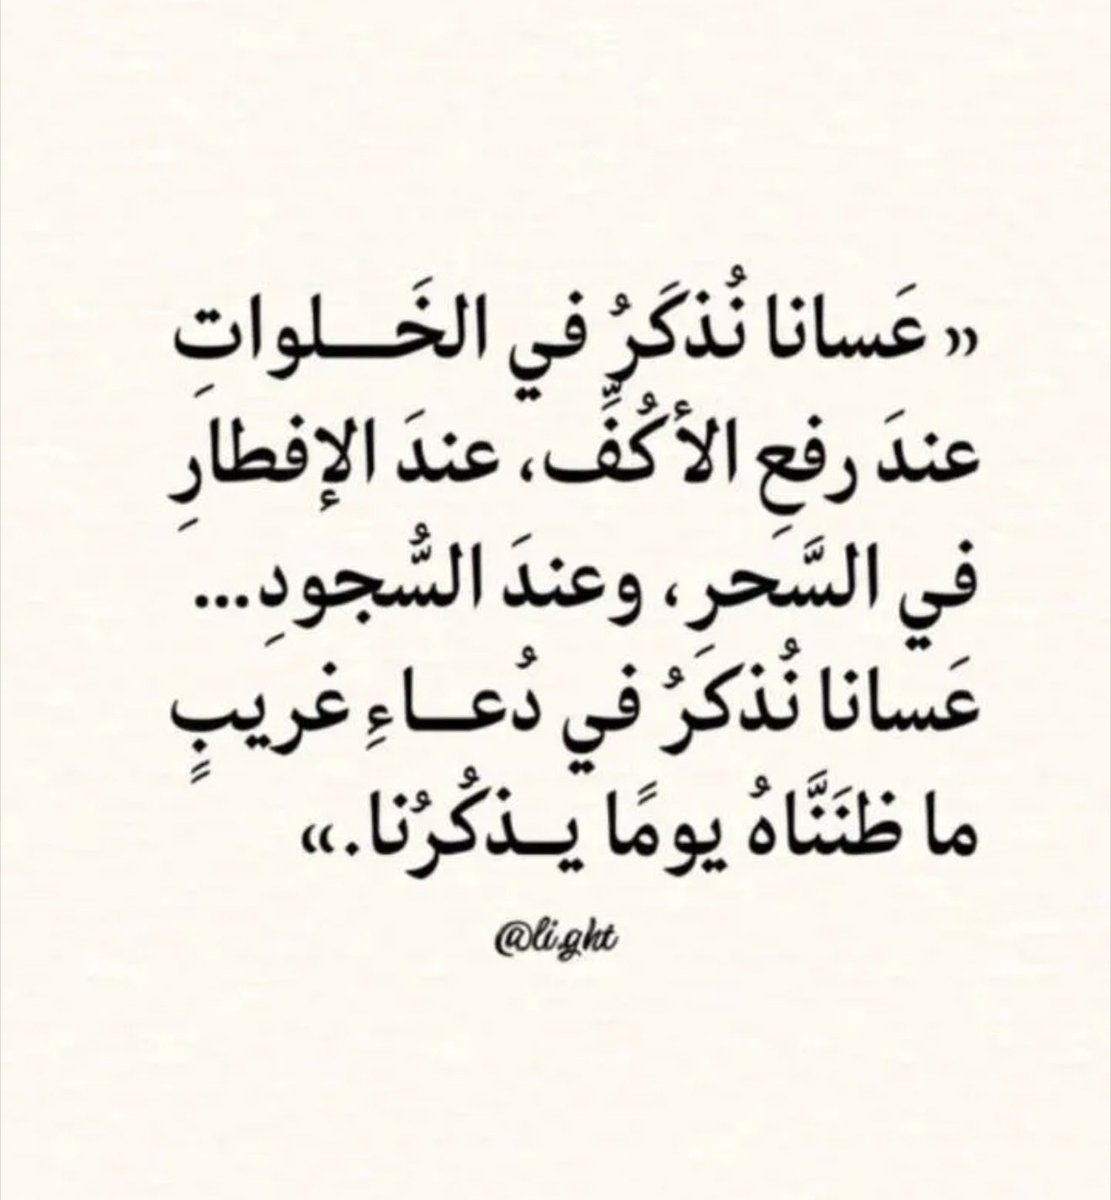 « عَسانا نُذكَرُ في الخَـــلواتِ
عندَ رفعِ الأكُفِّ، عندَ الإفطارِ
في السَّحرِ، وعندَ السُّجودِ...
عَسانا نُذكَرُ في دُعـــاءِ غريبٍ
ما ظنَنَّاهُ يومًا يـــذكُرُنا.»
@li.ght